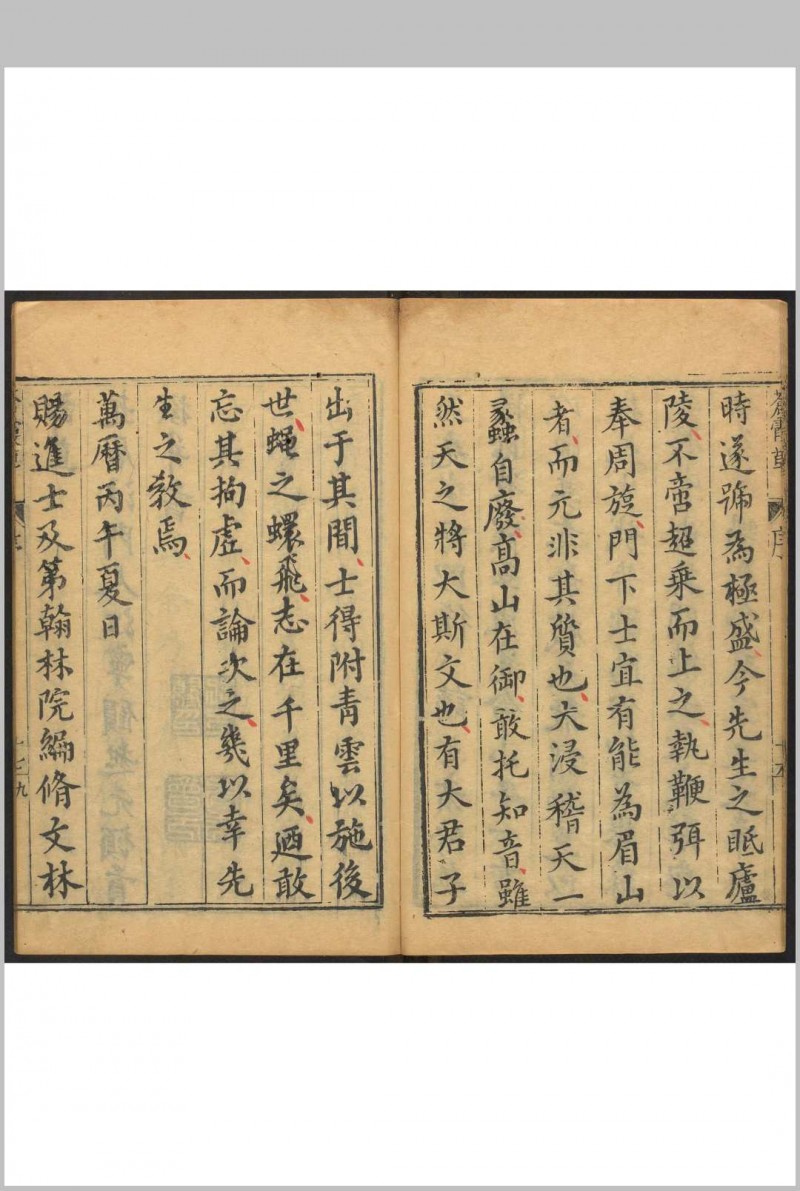 時遂號為極盛今先生之眂廬
陵不啻超乘而上之執鞭弭以
奉周旋門下士宜有能為眉山
者而元非其質也大浸稽天一
蠡自廢高山在御敢托知音雖
然天之將大斯文也有大君子
出于其間士得附青雲以施後
世蠅之蠉飛志在千里矣迺敢
忘其拘虛而論次之幾以幸先
生之敎焉
萬曆丙午夏日
賜進士及第翰林院編脩文林